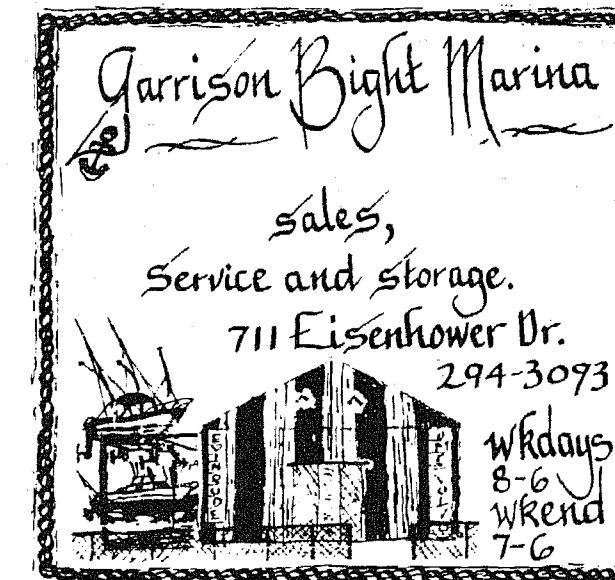 Garrison Bight Marina
sales,
Service and storage.
711 Eisenhower Dr.
294-3093
wkdays
8-6
wkend
7-6
EVINRUDE